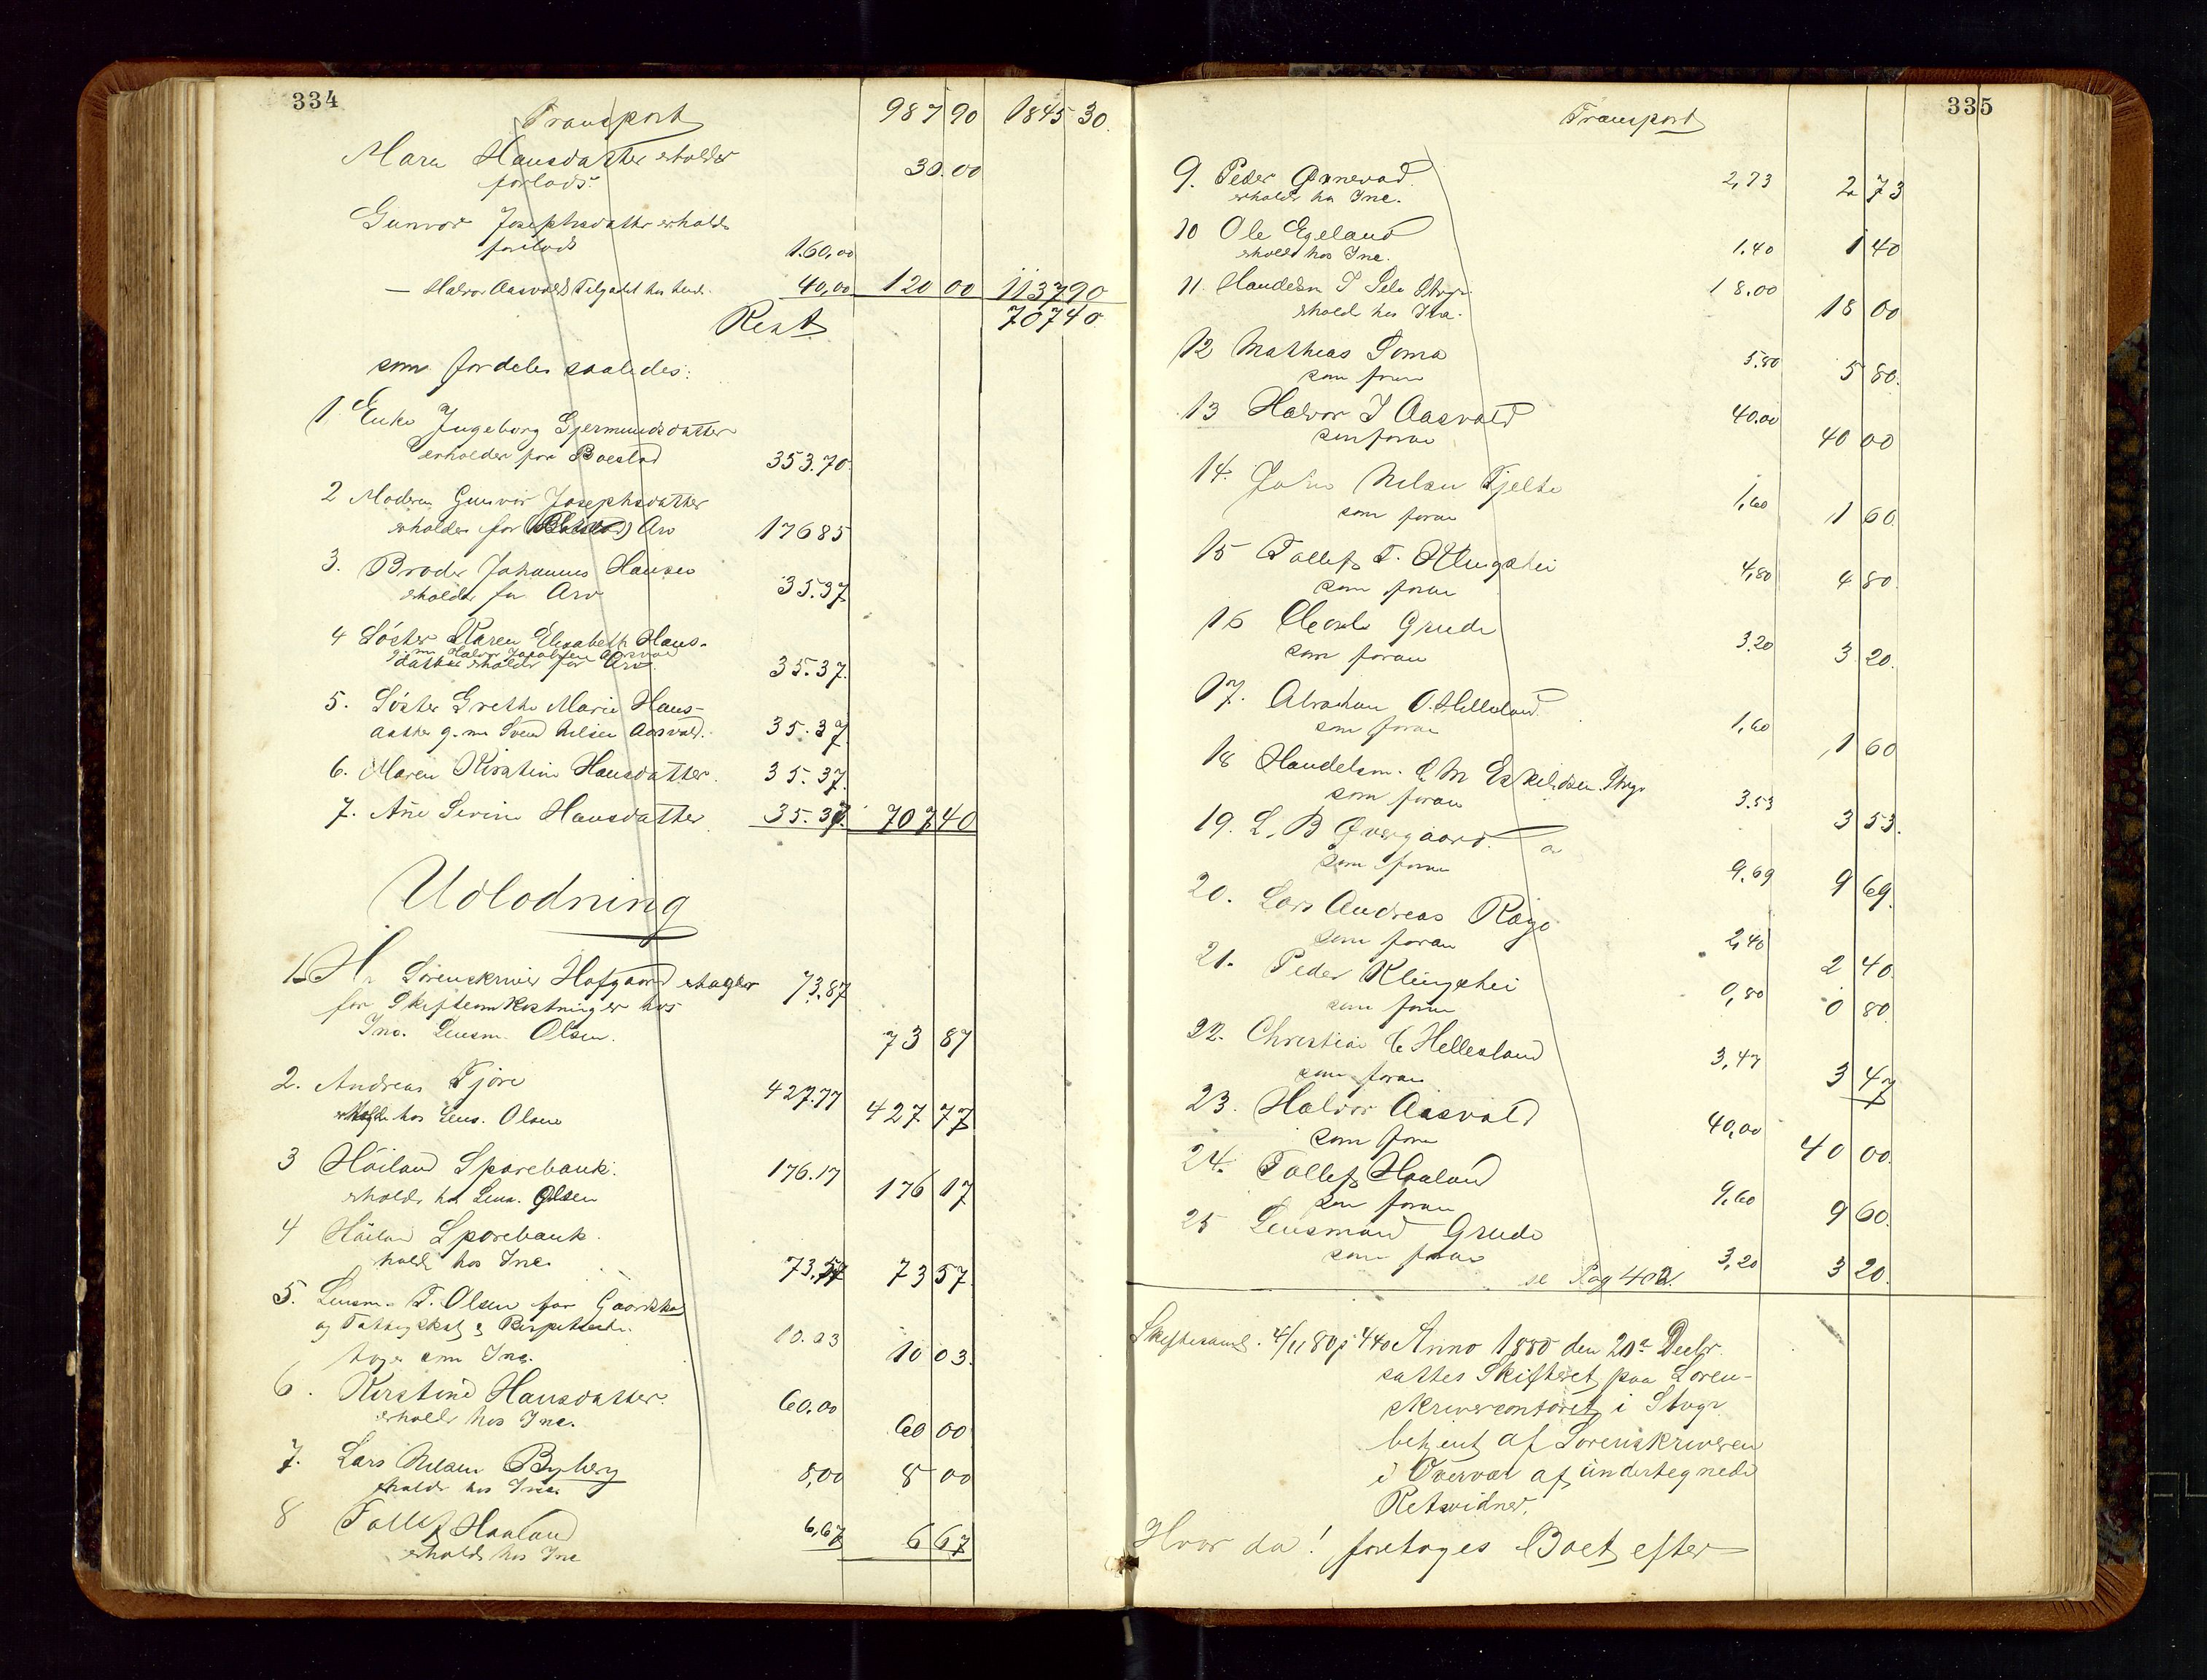 334
Transport 987 90 1845 30.
Maren Hansdatter erholder 30.00
forlods.
Gunvor Josephsdatter erholder
forlods 160,00
— Halvor Aasvolds Tilgodeh. hos hende. 40,00 120 00 1137 90
Rest 707 40
som fordeles saaledes:
1. Enke Ingeborg Gjermundsdatter
erholder for Boeslod 353.70
2 Moderen Gunvor Josephsdatter
erholder for Arv 176 85
3. Broder Johannes Hansen
erholder for Arv 35.37
4 Söster Karen Elisabeth Hans-
g. m. Halvor Jacobsen Aasvold
datter erholder for Arv. 35.37.
5. Söster Grethe Marie Hans-
datter g. m. Svend Nilsen Aasvold. 35.37
6. Maren Kirstine Hansdatter. 35.37.
7. Ane Serine Hansdatter 35.37. 707 40
Udlodning
1. Hr Sörenskriver Hofgaard erholder 73.87
for Skifteomkostninger hos
Inc. Lensm. Olsen. 73 87
2. Andreas Tjöre 427.77
hos Lens. Olsen 427 77
3 Höiland Sparebank. 176.17
erholder hos Lens. Olsen 176 17
4 Höiland Sparebank.
hos Inc. 73.57 73 57.
5. Lensm. T. Olsen for
og
som Inc. 10.03 10 03.
6. Kirstine Hansdatter. 60.00
erholder hos Inc. 60 00
7. Lars Nilsen Byberg 8,00 8 00
erholder hos Inc.
8 Tollef Haaland 6,67 6 67
erholder hos Inc
335
Transport
9. Peder Ornevad. 2,73 2 73
erholder hos Inc.
10 Ole Egeland 1.40 1 40
erhold hos Inc.
11. Handelsm I Sele Stvgr. 18.00
erhold hos Inc. 18 00
12 Mathias Soma 5.80 5 80.
som foran
13 Halvor J Aasvold 40.00
som foran 40 00
14. John Nilsen Tjelta 1,60
som foran 1 60.
15 Tollef T. Klingshei 4,80
som foran 4 80.
16 Grude 3.20
som foran 3 20.
17. Abraham O. Hellesland 1,60
som foran 1 60
18 Handelsm. Eskildsen Stvgr 3.53
som foran 3 53.
19. L. B Overgaard.
som foran 9.69 9 69.
20. Lars Andreas Rage 2,40
som foran 2 40.
21. Peder Klingshei 0,80
som foran 0 80.
22. Christian C Hellesland 3,47
som foran 3 47
23. Halvor Aasvold 40,00
som foran 40 00.
24. Tollef Haaland 9.60
som foran 9 60.
25 Lensmand Grude
som foran 3,20 3 20.
se Pag 402.
Skiftesaml. 4/11 80 p 440 Anno 1880 den 20de Decbr.
sattes Skifteret paa Soren-
skrivercontoret i Stvgr.
betjent af Sorenskriveren
i Overvær af undertegnede
Retsvidner.
Hvor da! foretoges Boet efter